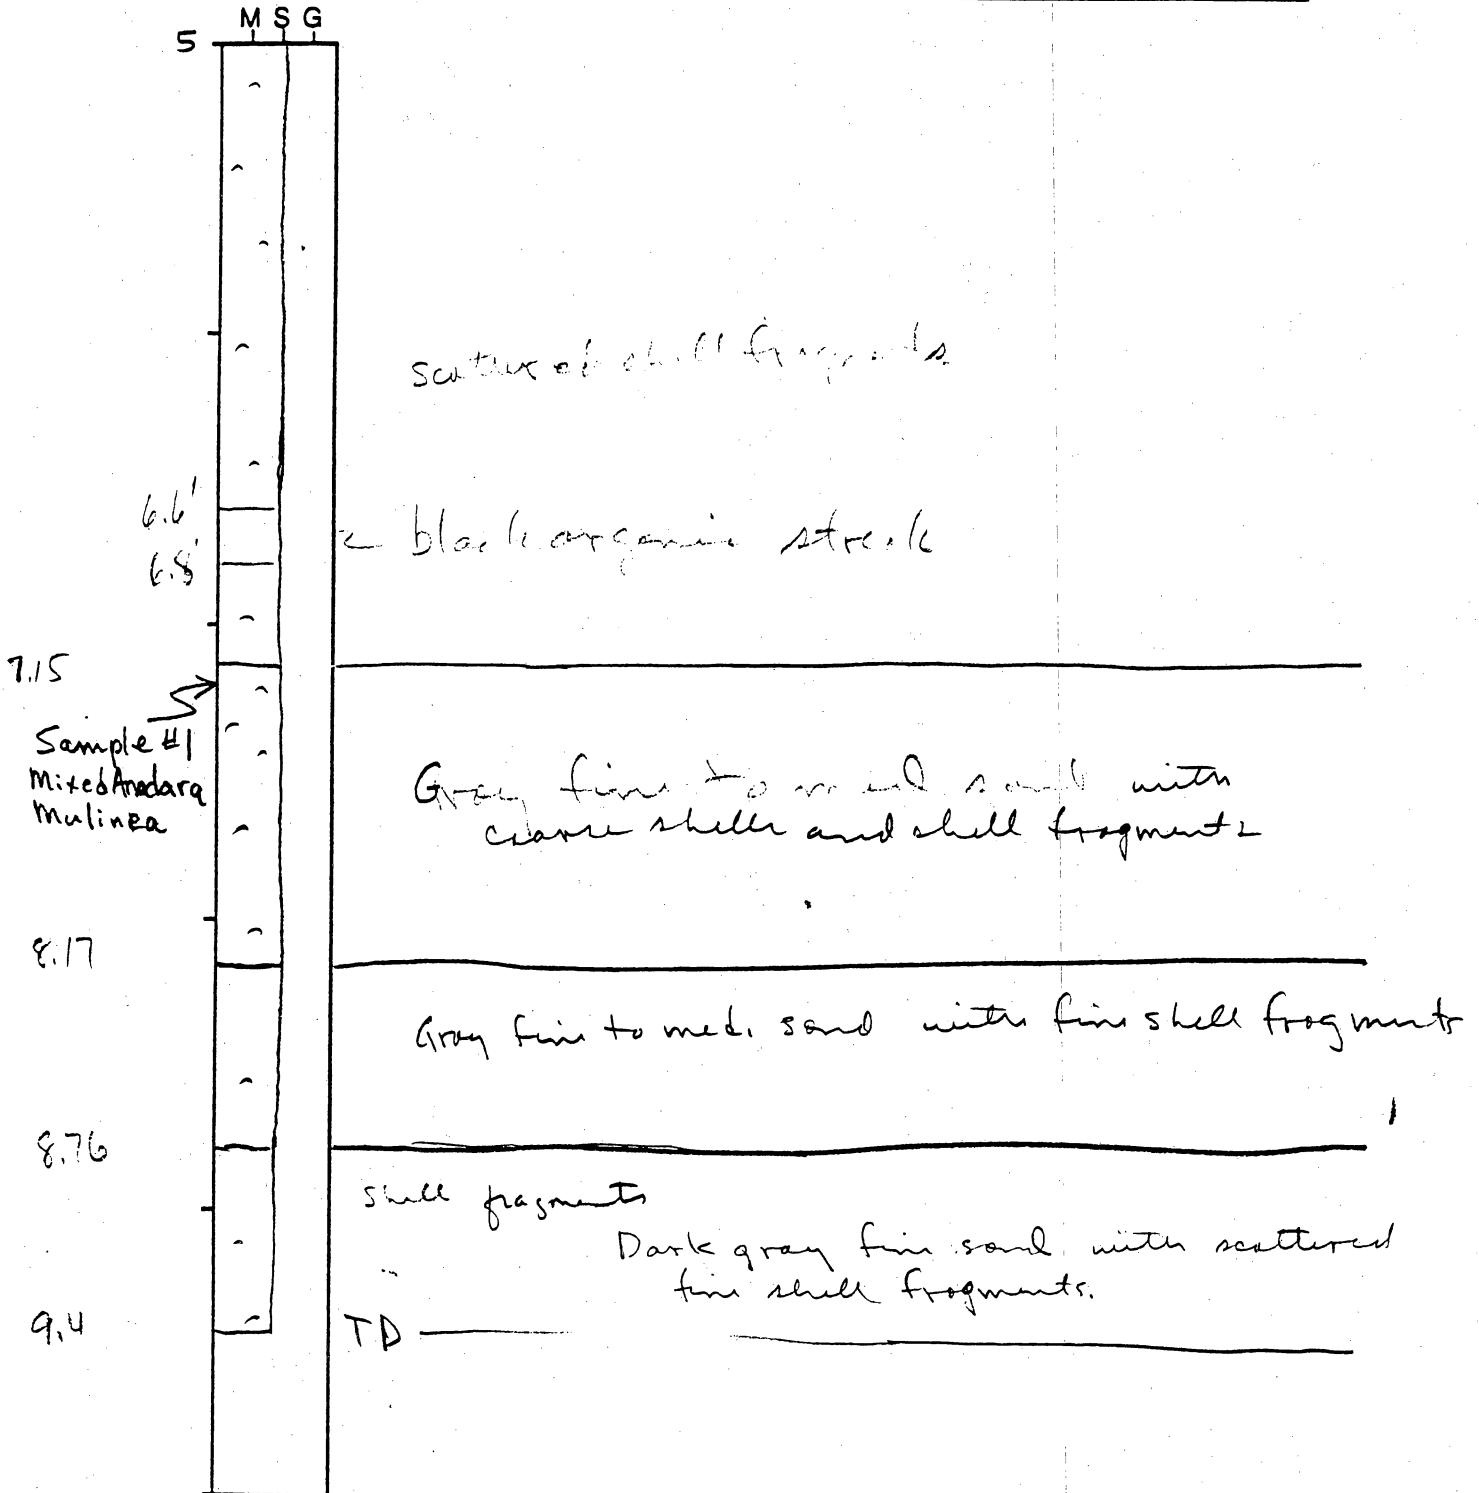 M S G
5
scattered shell fragments
6.6'
black organic streak
6.8'
7.15
Sample #1
Mixed Anadara
Mulinea
Gray fine to med sand with
coarse shells and shell fragments
8.17
Gray fine to med. sand with fine shell fragments
8.76
shell fragments
Dark gray fine sand with scattered
fine shell fragments.
9.4
TD